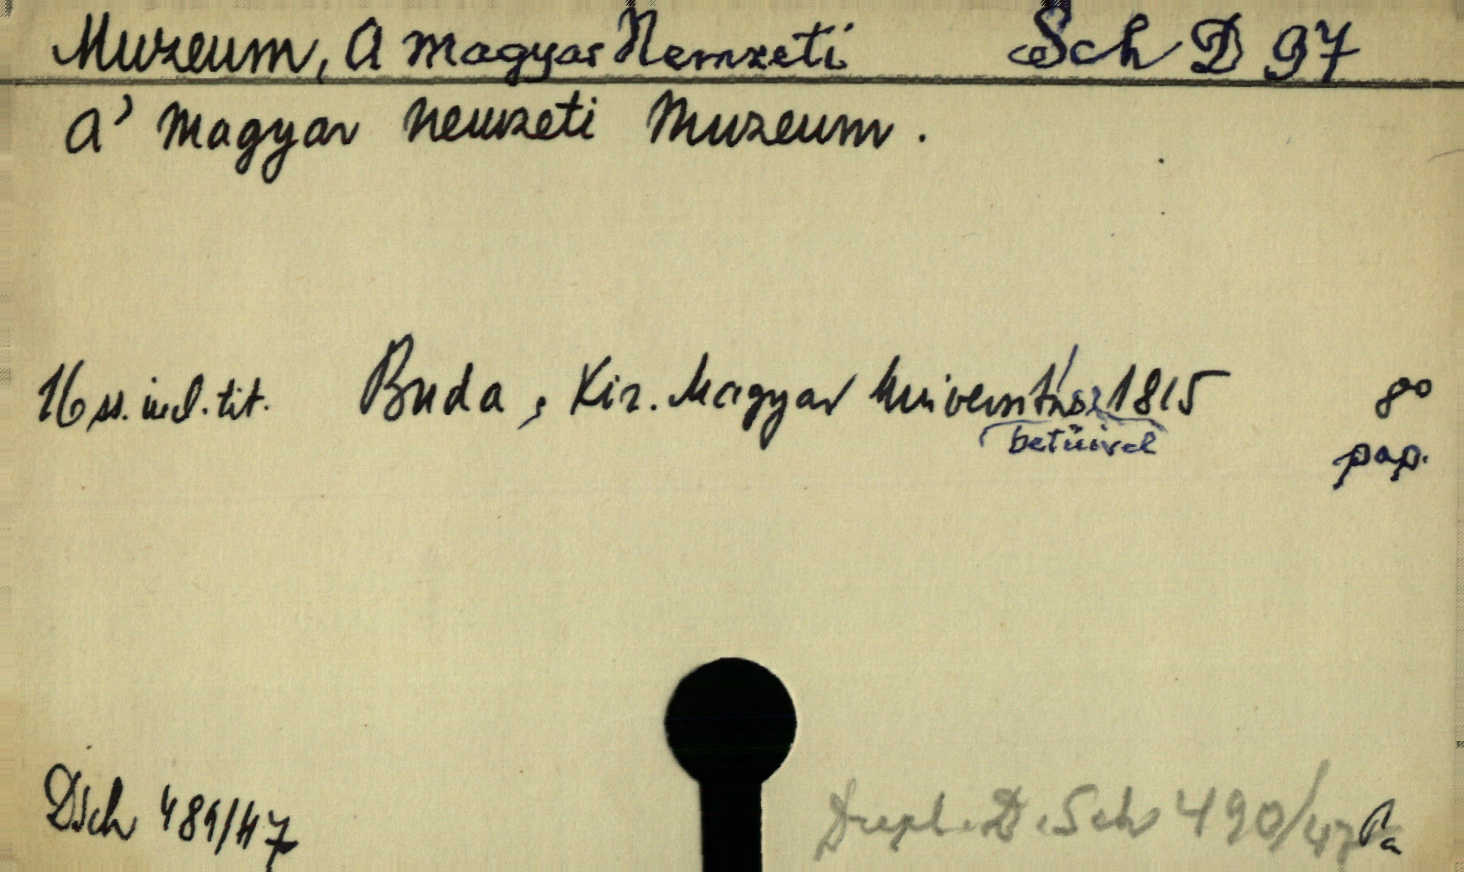 Muzeum, A magyar Nemzeti Sch D 97
A' Magyar Nemzeti Muzeum.
16 ss. incl. tit. Buda, Kir. Magyar Universitás 1815 8°
betűivel pap.
Dsch 489/47 Dupl. D. Sch 490/47 Pa